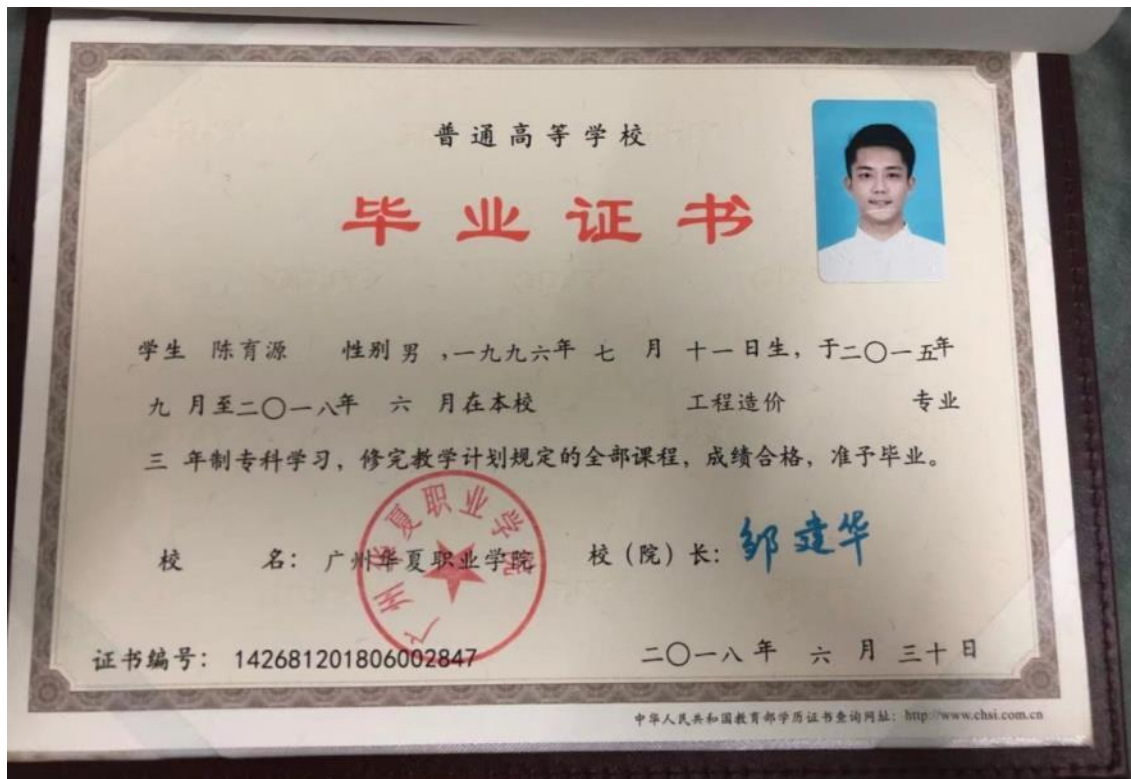 普通高等学校
毕业证书
学生 陈育源 性别 男 ,一九九六年 七 月 十一日生，于二〇一五年
九 月至二〇一八年 六 月在本校 工程造价 专业
三 年制专科学习，修完教学计划规定的全部课程，成绩合格，准予毕业。
广州华夏职业学院
校 名：广州华夏职业学院 校（院）长：邹建华
证书编号：142681201806002847 二〇一八年 六 月 三十日
中华人民共和国教育部学历证书查询网址：http://www.chsi.com.cn